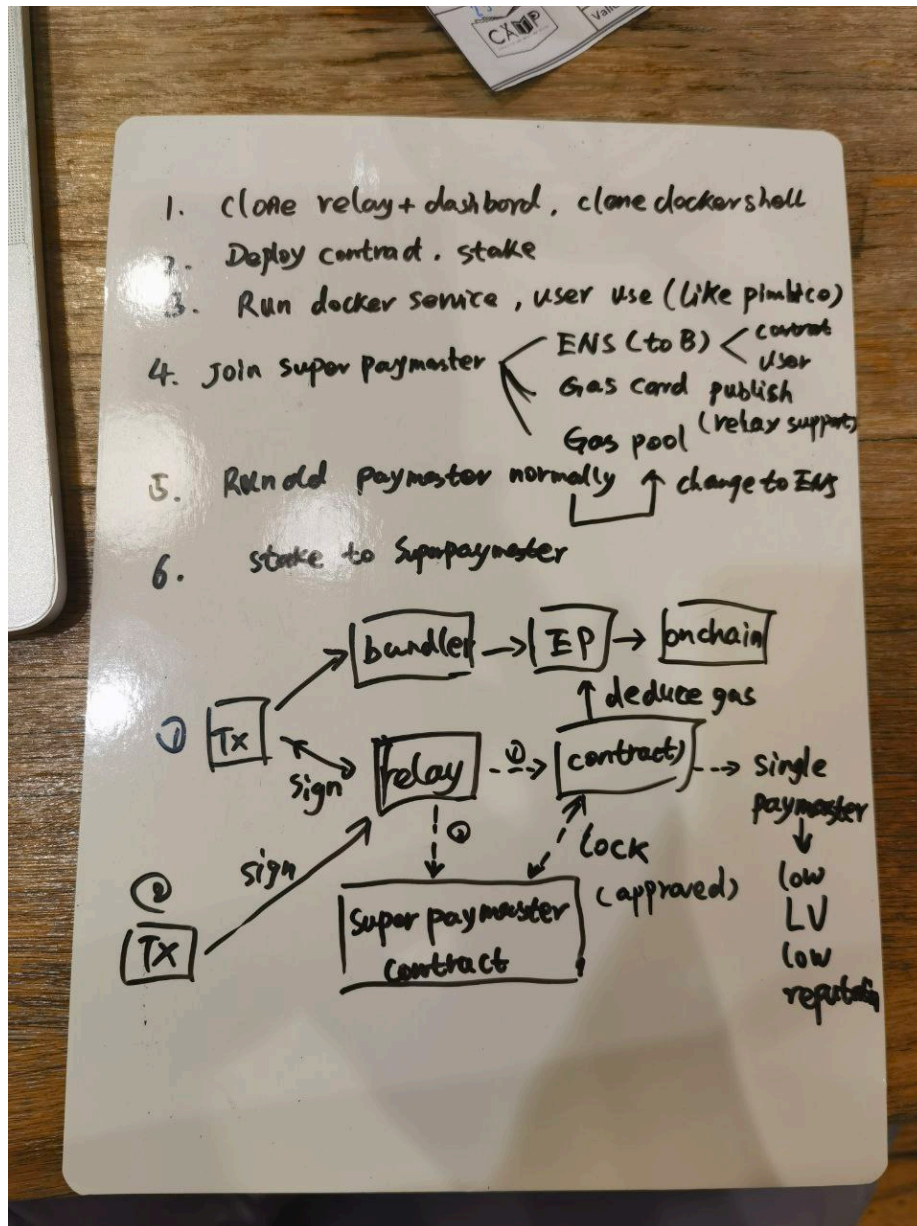 CAMP
Valid
1. Clone relay + dashbord, clone dockershell
2. Deploy contract. stake
3. Run docker service, user use (like pimlico)
4. Join super paymaster
ENS (to B) < contract
user
Gas card publish
Gas pool (relay support)
5. Run old paymaster normally
change to ENS
6. stake to Superpaymaster
bundler
EP
onchain
deduce gas
① Tx
sign
relay
①
contract
single
paymaster
②
lock
(approved)
low
LV
low
reputation
②
Tx
sign
Super paymaster
contract